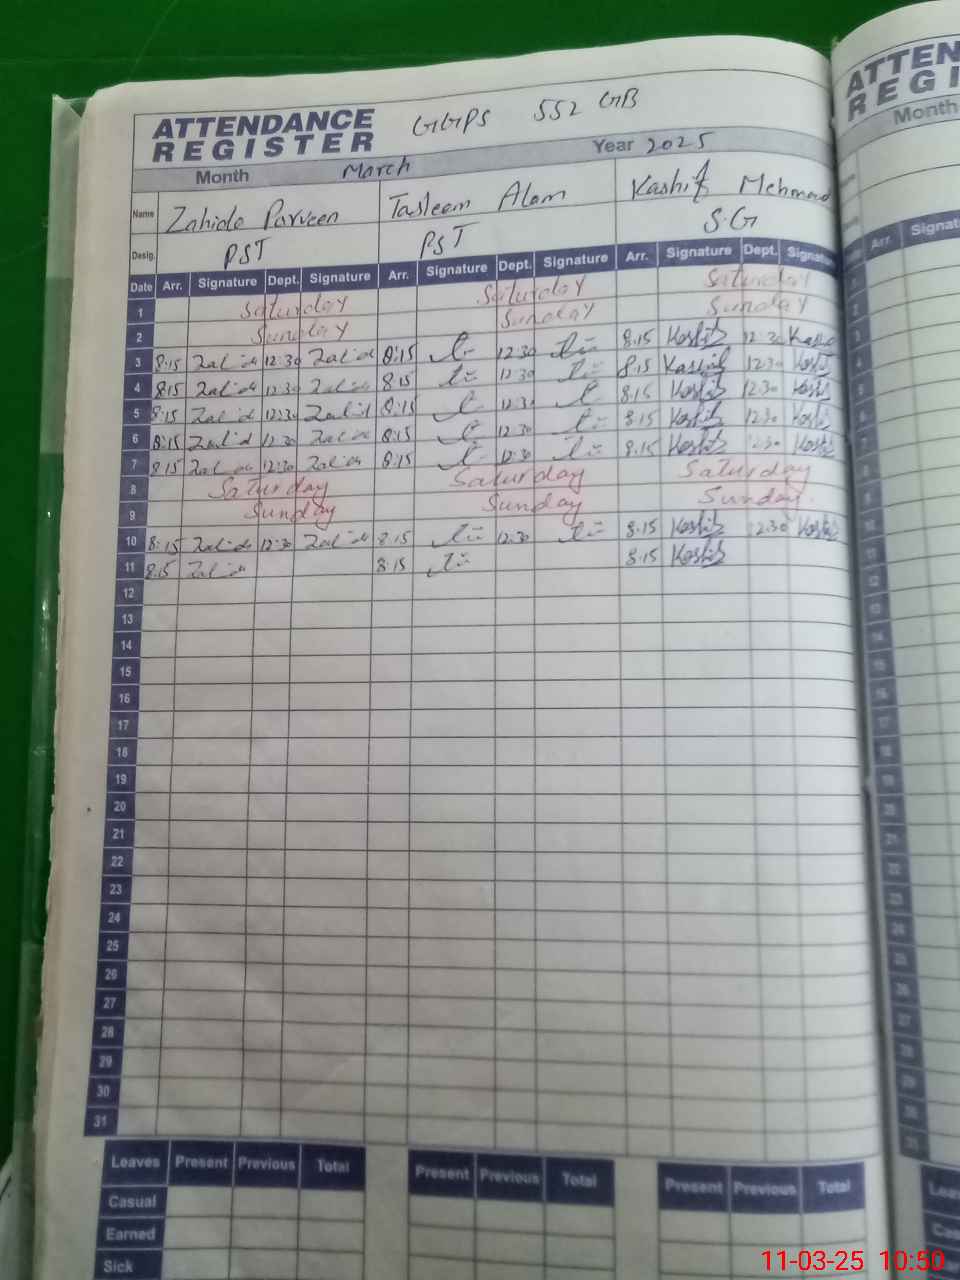 ATTENDANCE REGISTER GGPS 552 GB
Month March Year 2025
Name Zahida Parveen Tasleem Alam Kashif Mehmood
Desig. PST PST S.G
Date Arr. Signature Dept. Signature Arr. Signature Dept. Signature Arr. Signature Dept. Signature
1 Saturday Saturday Saturday
2 Sunday Sunday Sunday
3 8:15 Zahida 12:30 Zahida 8:15 12:30 8:15 Kashif 12:30 Kashif
4 8:15 Zahida 12:30 Zahida 8:15 12:30 8:15 Kashif 12:30 Kashif
5 8:15 Zahida 12:30 Zahida 8:15 12:30 8:15 Kashif 12:30 Kashif
6 8:15 Zahida 12:30 Zahida 8:15 12:30 8:15 Kashif 12:30 Kashif
7 8:15 Zahida 12:30 Zahida 8:15 12:30 8:15 Kashif 12:30 Kashif
8 Saturday Saturday Saturday
9 Sunday Sunday Sunday
10 8:15 Zahida 12:30 Zahida 8:15 12:30 8:15 Kashif 12:30 Kashif
11 8:15 Zahida 8:15 8:15 Kashif
12
13
14
15
16
17
18
19
20
21
22
23
24
25
26
27
28
29
30
31
Leaves Present Previous Total Present Previous Total Present Previous Total
Casual
Earned
Sick
ATTEN
REGI
Month
Arr. Signat
Lea
Cas
11-03-25 10:50